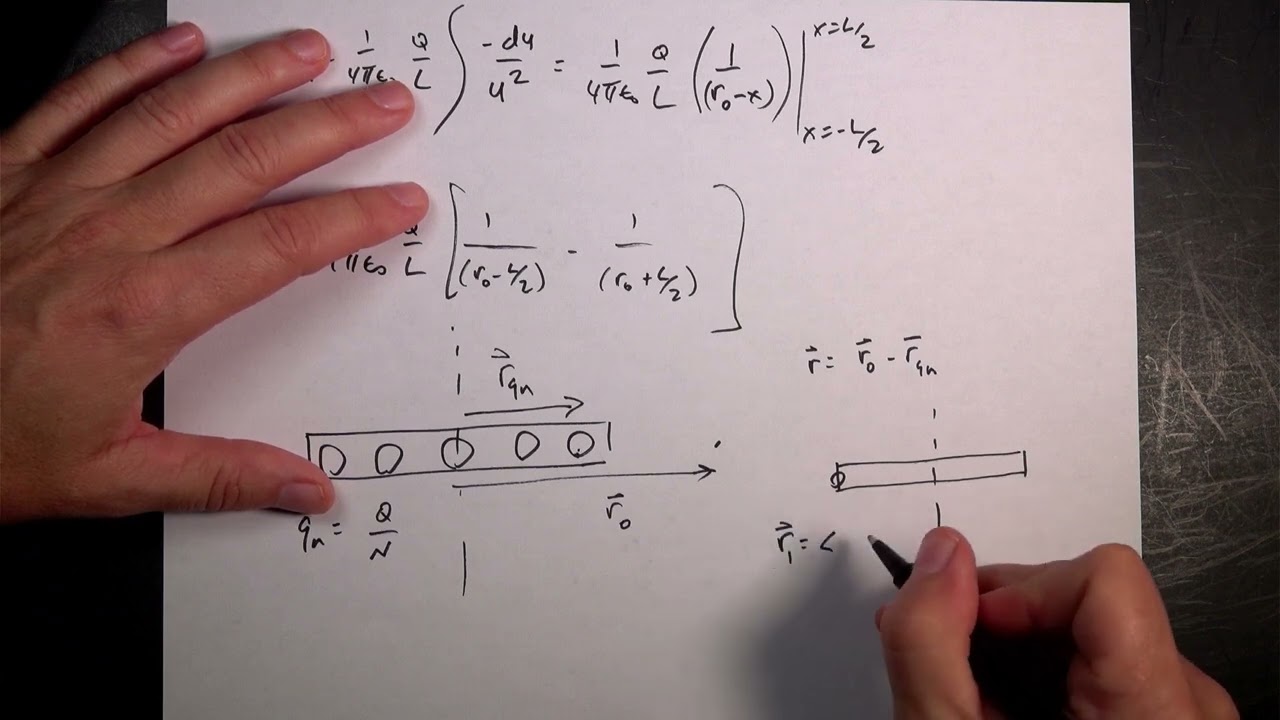 1/4πε₀ Q/L ∫ -du/u² = 1/4πε₀ Q/L (1/(r₀-x)) | x=L/2 x=-L/2
πε₀ Q/L [1/(r₀-L/2) - 1/(r₀+L/2)]
r⃗ = r⃗₀ - r̅qn
r⃗qn
r⃗₀
qn = Q/N
r⃗₁ = <